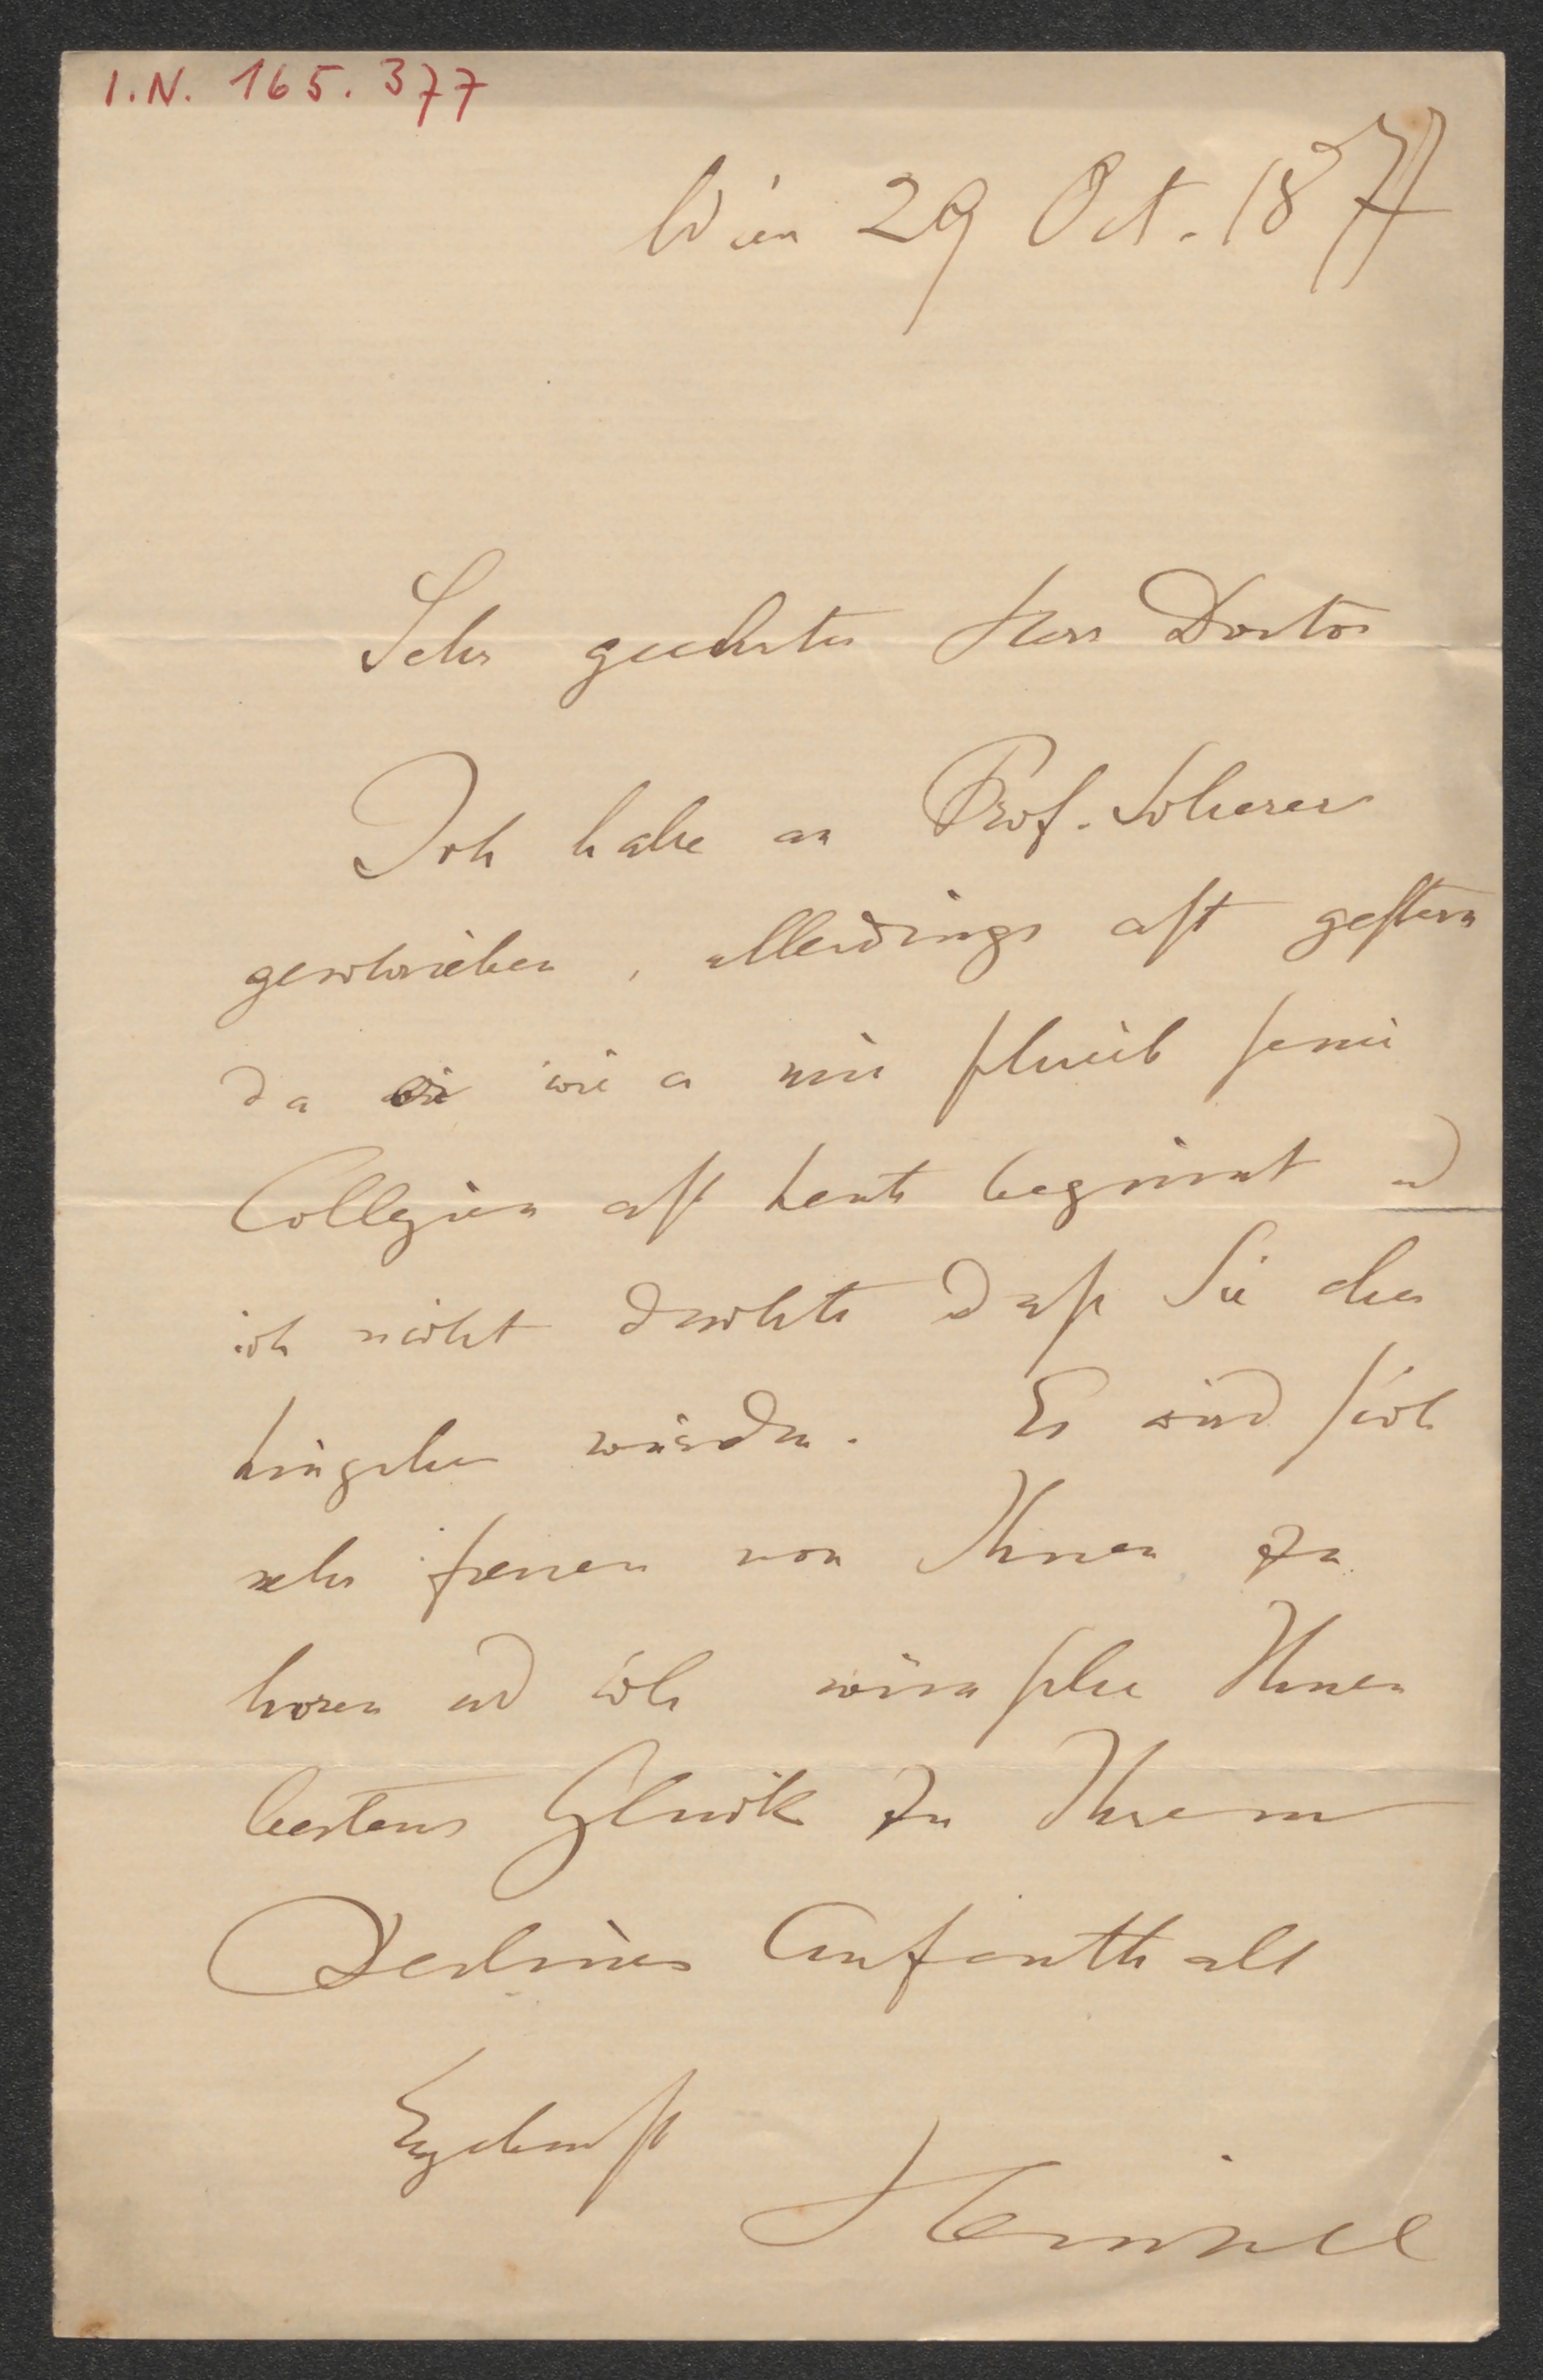 I.N. 165.377
Wien 29 Oct. 1877
Sehr geehrter Herr Doctor
Ich habe an Prof. Scherer
geschrieben, allerdings erst gestern
da wie er mir schreib seine
Collegien erst heute beginnt und
ich nicht dachte daß Sie eher
hingehen würden. Es wird sich
sehr freuen von Ihnen zu
hören und ich wünsche Ihnen
bestens Glück zu Ihrem
Berliner Aufenthalt
Ergebenst
Heinzel